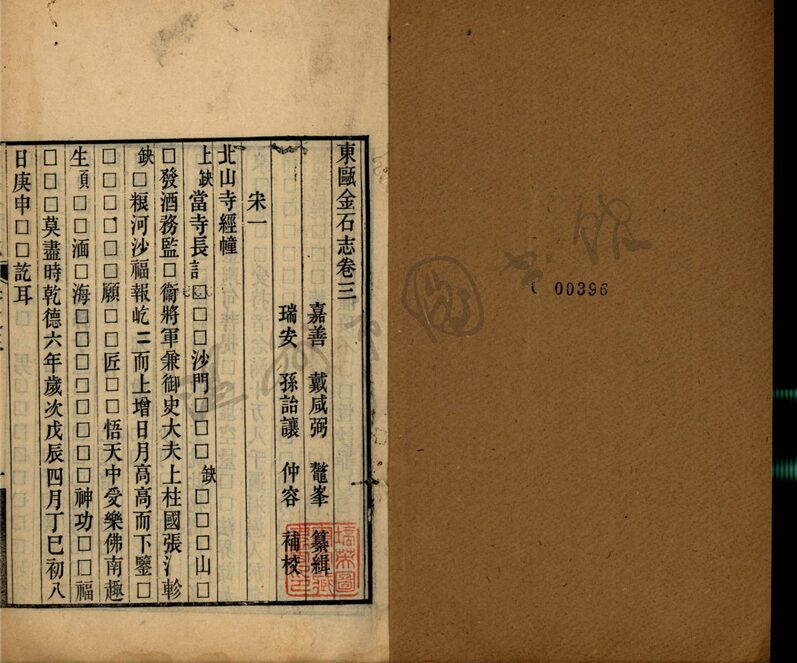 00396
東甌金石志卷三
嘉善 戴咸弼 鼇峯 纂緝
瑞安 孫詒讓 仲容 補校
宋一
北山寺經幢
上缺當寺長□□□沙門□□□缺□□□山□
□發酒務監□衞將軍兼御史大夫上柱國張汀軫
缺□粮河沙福報屹二而上增日月高高而下鑒□
□□□□□願□□匠□□悟天中受樂佛南趣
生□□湎□海□□□□□□□□神功□□福
□□□莫盡時乾德六年歲次戊辰四月丁巳初八
日庚申□□訖耳